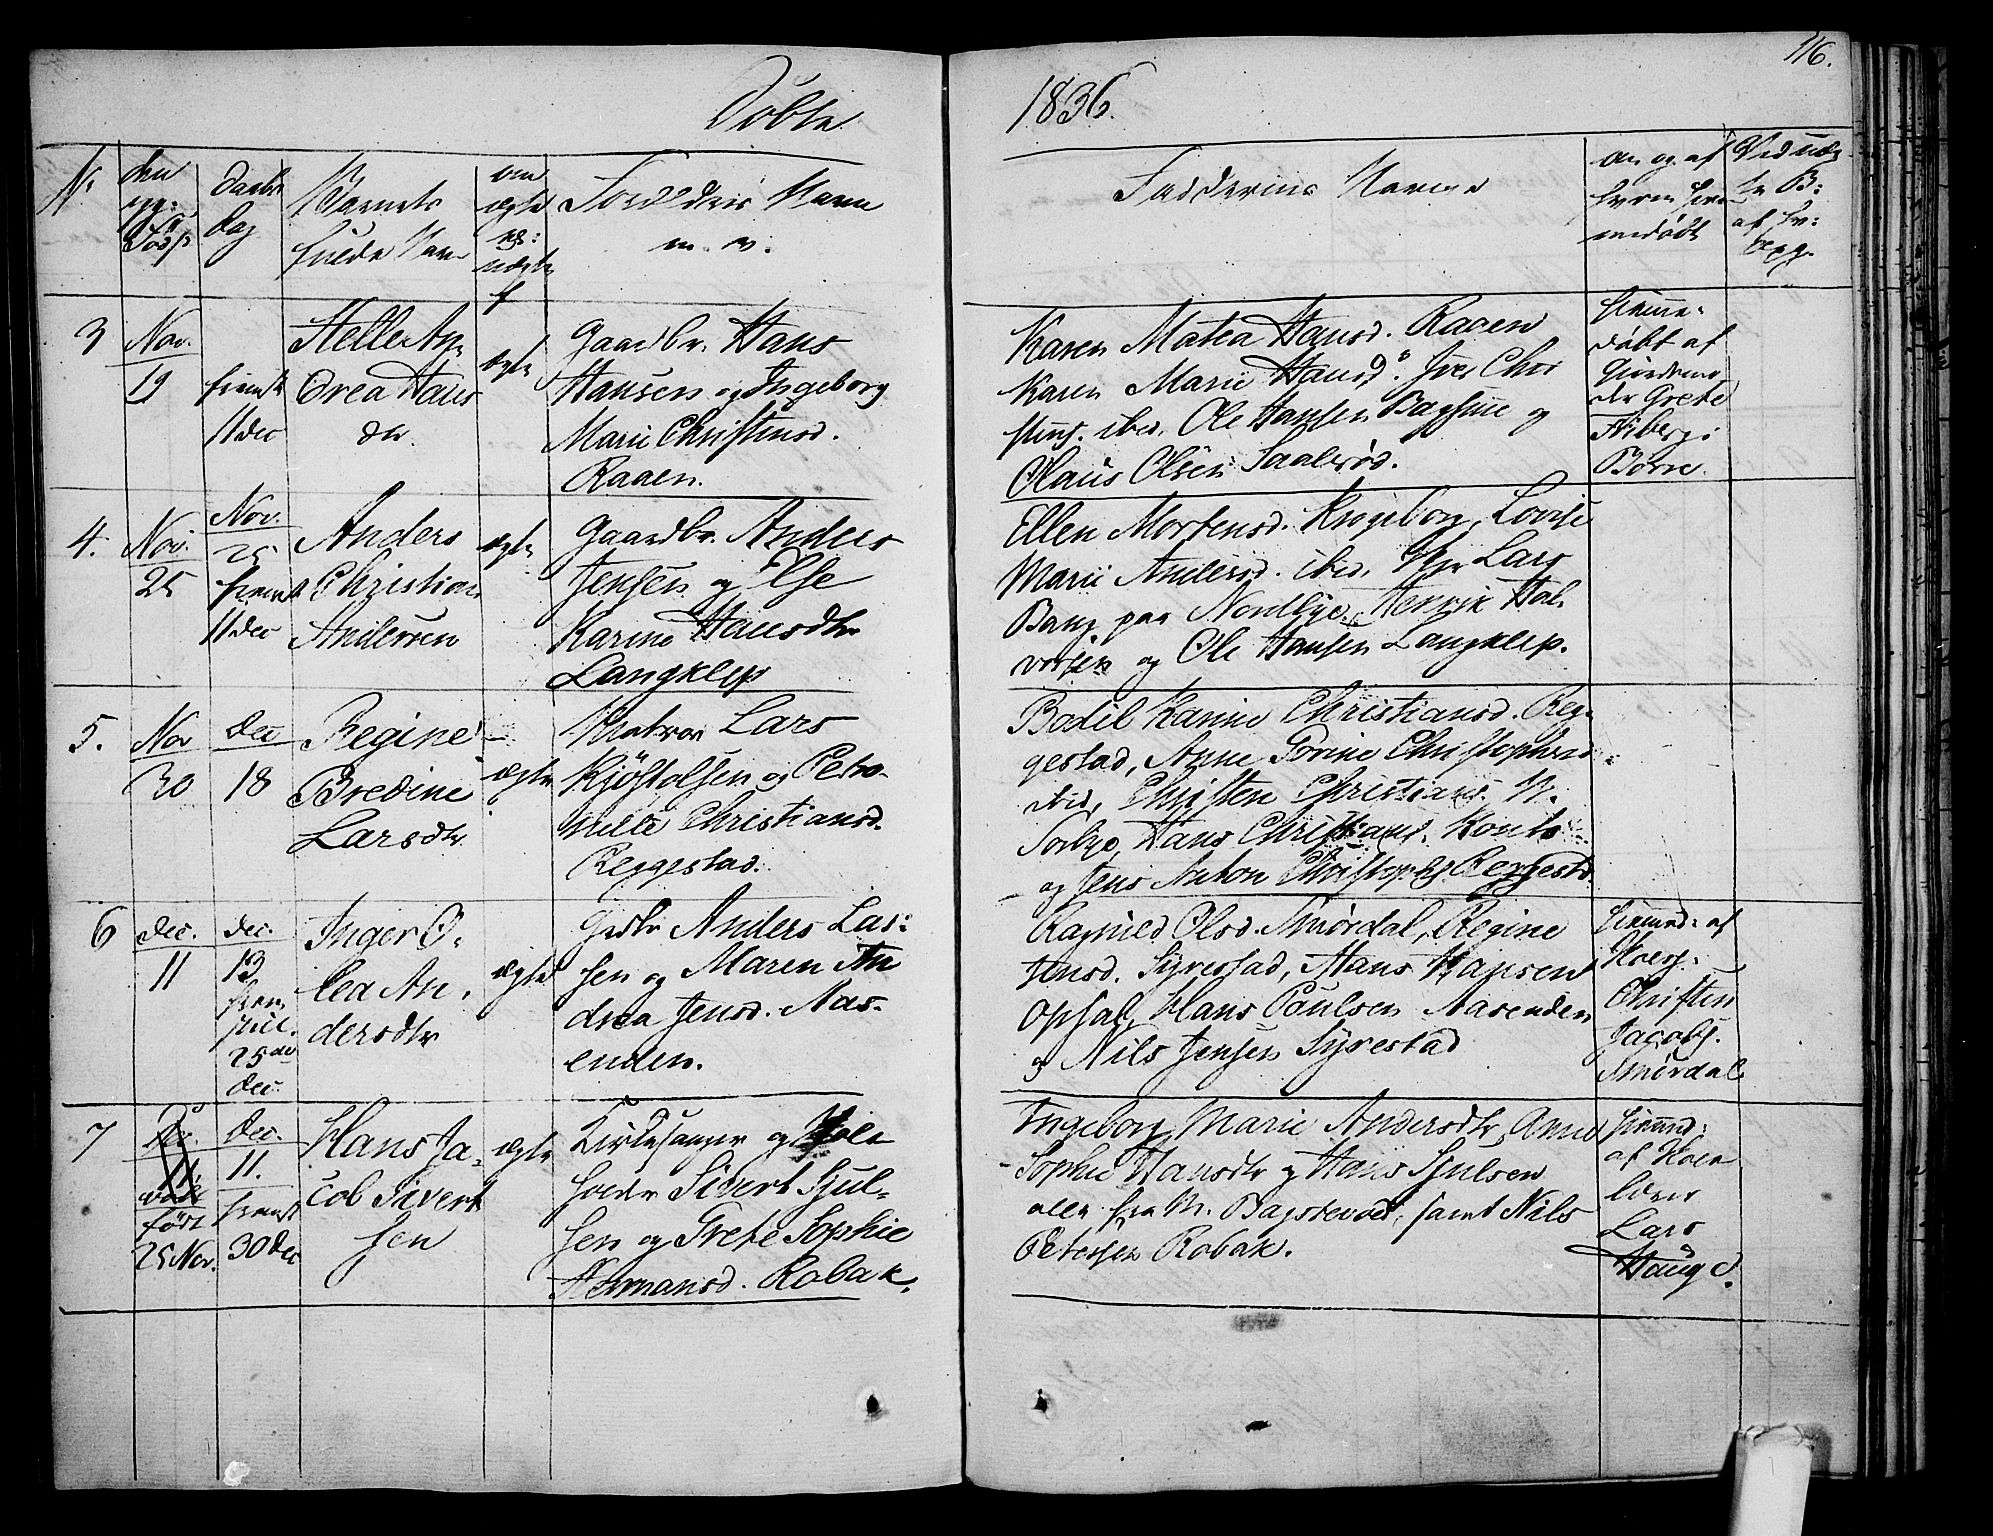 116.
Döbte
1836.
Nr
den
Föds
Daabs
Dag
Barnets
fulde Nav
om
ægte
uægte
Forældres Navn
m. v.
Faddernes Navne
om og af
hvem hjem
medöbt
3
Nov.
19
fremst
11 Dec
Helle An
drea Hans
dr.
ægte
Gaardbr. Hans
Hansen og Ingeborg
Marie Christensd.
Raaen.
Karen Matea Hansd. Raaen
Karen Marie Hansd. Iver Chri
stens. ibid, Ole Hansen Bagghuse og
Olaus Olsen Saalerød.
hjemme-
döbt af
Gjordemo
dr Grete
Friberg:
Börre.
4.
Nov.
25
Nov.
25
fremst
11 Dec
Anders
Christian
Andersen
ægte
Gaardbr. Anders
Jensen og Else
Karine Hansdtr
Langklep
Ellen Mortensd. Krogeborg, Lovise
Marie Andersd. ibid, Hr Lars
Bang paa Nordbye, Henrik Hal
vorsen og Ole Hansen Langklep.
5.
Nov
30
Dec
18
Regine
Bredine
Larsdtr
ægte
Matros Lars
Kjöstolsen og Petro-
nille Christiansd.
Reggestad.
Bodil Karine Christiansd. Reg-
gestad, Anne Torine Christophersd
ibid, Christen Christians. N.
Torbye, Hans Christians.
og Jens Anton Christophs. Reggestd.
6
Dec.
11
Dec.
13
frem
stil.
25de
Dec.
Inger O-
lea An-
dersdtr
ægte
Grdbr Anders Lar-
sen og Maren An
drea Jensd. Aas-
enden.
Ragnild Olsd. Smördal, Regine
Jensd. Syrestad, Hans Hansen
Opsal, Hans Poulsen Aasenden
og Nils Jensen Syrestad
hjemd: af
Christen
Jacobs.
Smördal
7
Dec.
11
född
født
25 Nov.
Dec.
11.
fremst
30 Dec
Hans Ja-
cob Sivert
sen
ægte
Kirkesanger og Skole
holdr Sivert Sjul-
sen og Grete Sophie
Hermansd. Robak.
Ingeborg Marie Andersdtr, Anne
Sophie Hansdtr og Hans Sjulsen
alle fra N. Bagstevold, samt Nils
Petersen Robak.
hjemd:
af Skoe
lærer
Lars
Hauge.